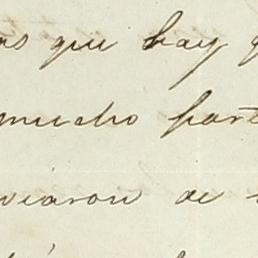 as que hay
mucho part
viaron de